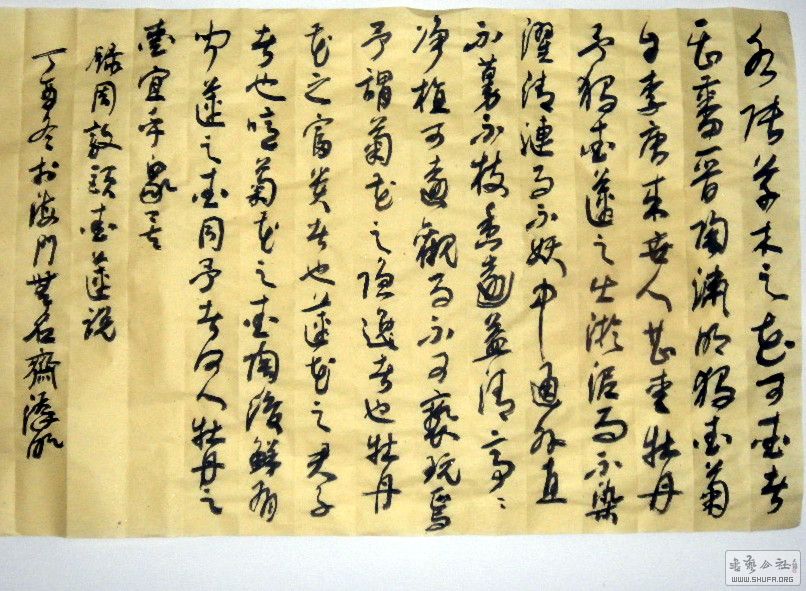 水陸草木之花可愛者
甚蕃晉陶淵明獨愛菊
自李唐來世人甚愛牡丹
予獨愛蓮之出淤泥而不染
濯清漣而不妖中通外直
不蔓不枝香遠益清亭〻
淨植可遠觀而不可褻玩焉
予謂菊花之隱逸者也牡丹
花之富貴者也蓮花之君子
者也噫菊花之愛陶後鮮有
聞蓮之愛同予者何人牡丹之
愛宜乎衆矣
錄周敦頤愛蓮說
丁酉冬於海門無名齋
書藝公社
WWW.SHUFA.ORG